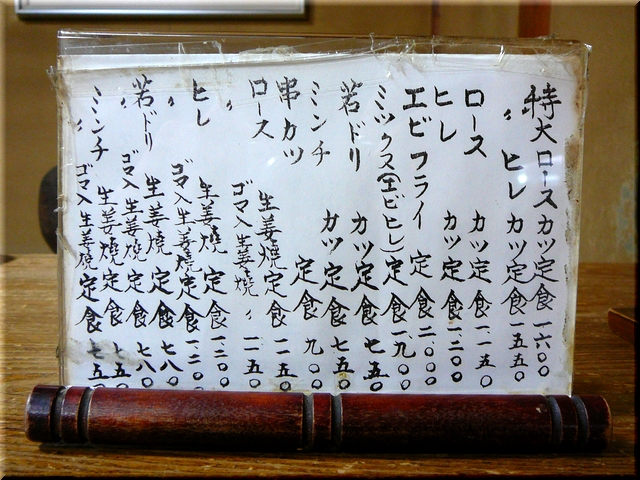 特大ロースカツ定食 一六〇〇
〃 ヒレカツ定食 一五五〇
ロース カツ定食 一一五〇
ヒレ カツ定食 一二〇〇
エビフライ定食 二〇〇〇
ミックス(エビヒレ)定食 一九〇〇
若ドリ カツ定食 七五〇
ミンチ カツ定食 七五〇
串カツ 定食 九〇〇
ロース 生姜焼定食 一一五〇
〃 ゴマ入生姜焼 〃 一一五〇
ヒレ 生姜焼定食 一二〇〇
〃 ゴマ入生姜焼定食 一二〇〇
若ドリ 生姜焼定食 七八〇
〃 ゴマ入生姜焼定食 七八〇
ミンチ 生姜焼定食 七五〇
〃 ゴマ入生姜焼定食 七五〇